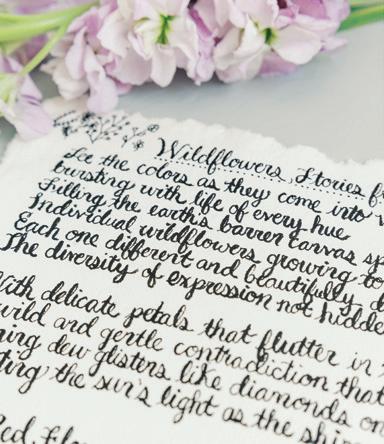 Wildflowers, Stories
See the colors as they come into
bursting with life of every hue
Filling the earth's barren canvas
Individual wildflowers growing to
Each one different and beautifully
The diversity of expression not
With delicate petals that flutter in
and gentle contradiction that
dew glistens like diamonds on
the sun's light as the